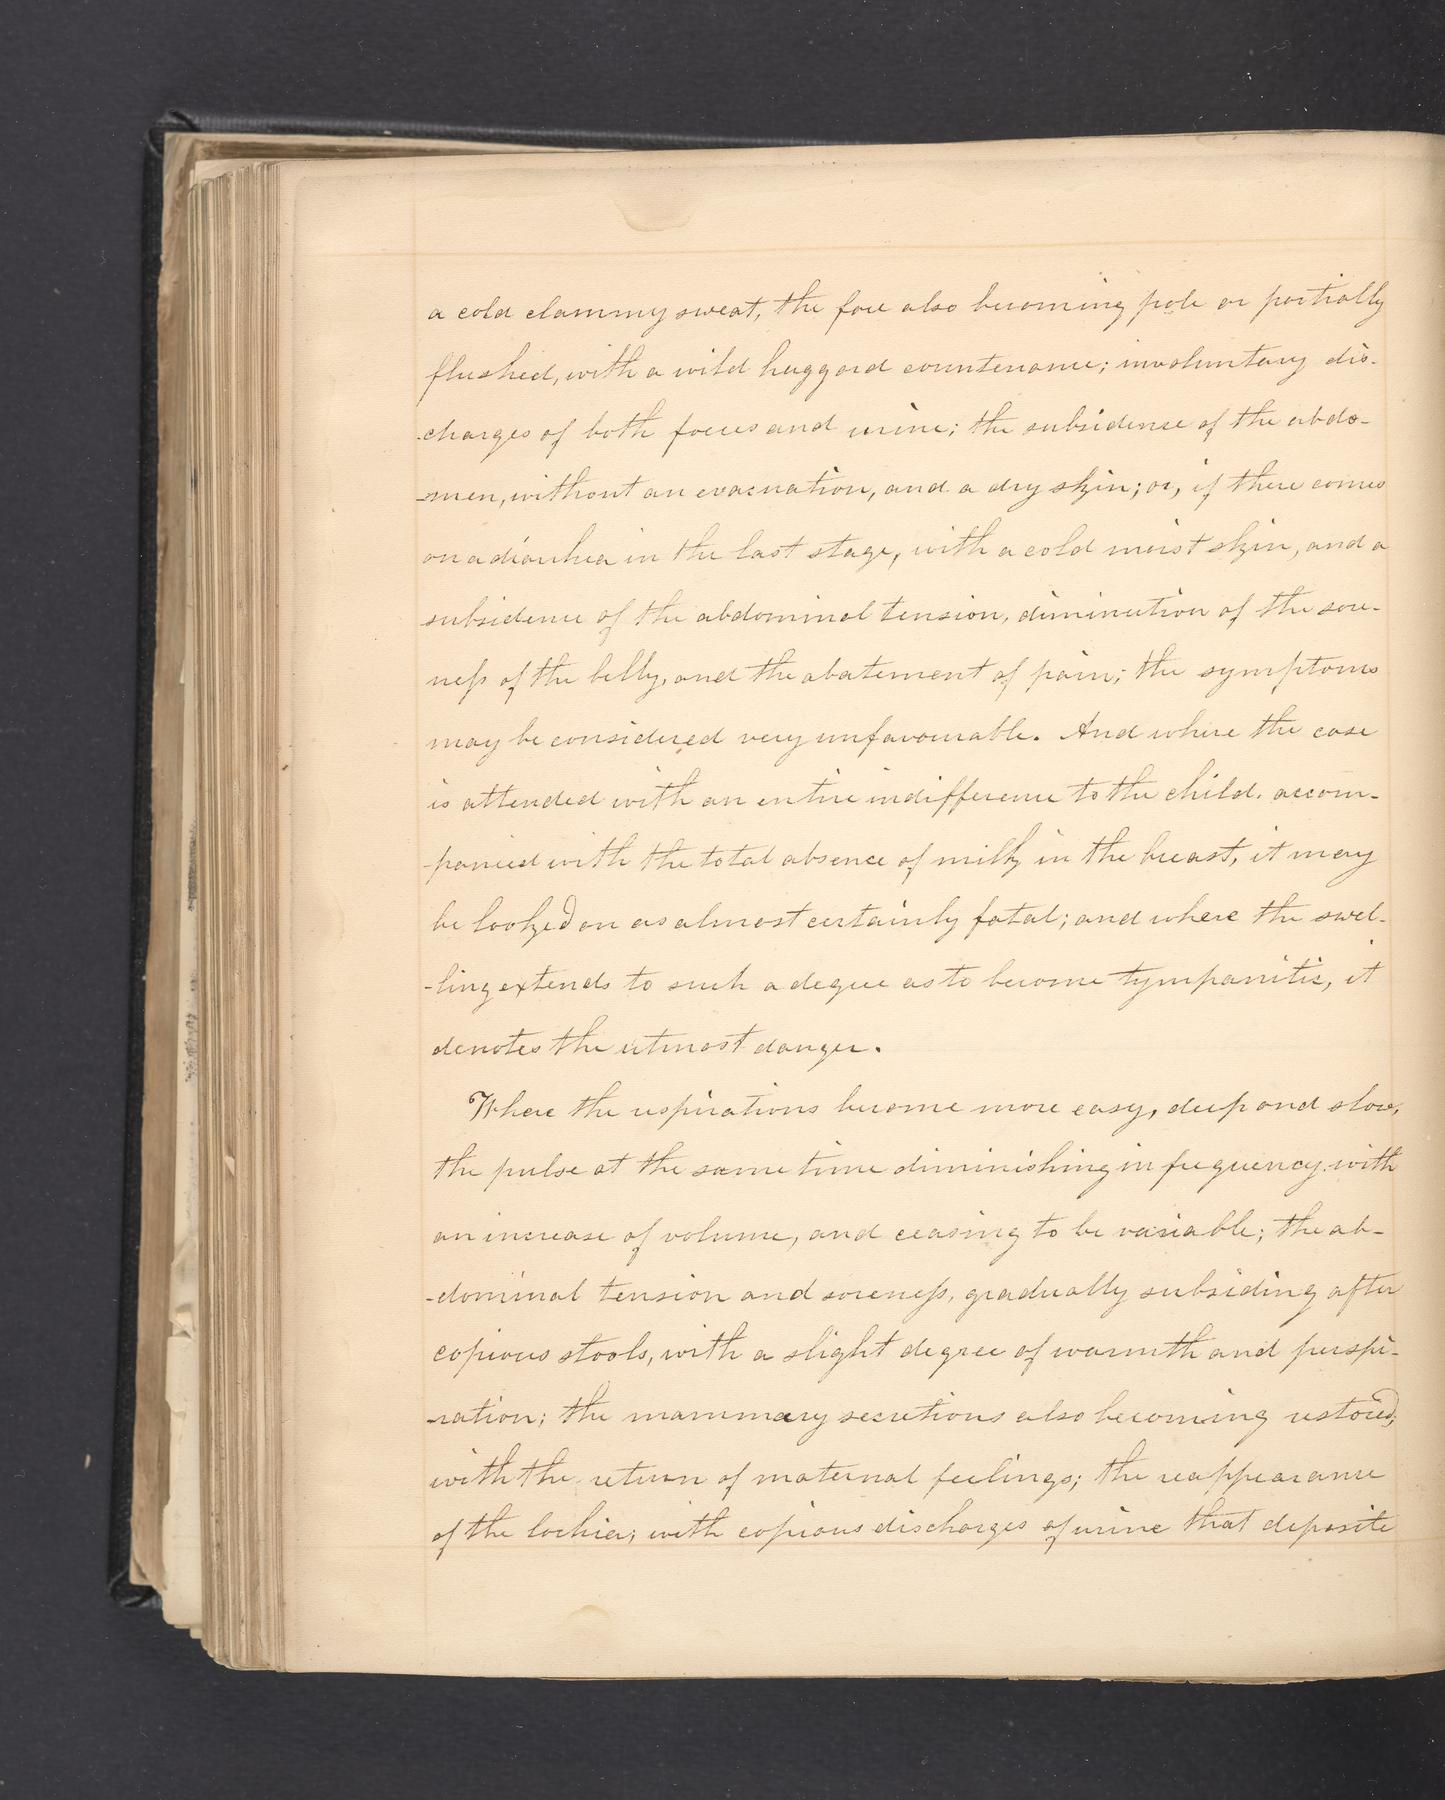 a cold clammy sweat, the face also becoming pale or partially
flushed, with a wild haggard countenance; involuntary dis-
charges of both foeces and urine; the subsidense of the abdo-
-men, without an evacuation, and a dry skin; or, if there comes
on a diarrhea in the last stage, with a cold moist skin, and a
subsidence of the abdominal tension, diminution of the sore-
ness of the belly, and the abatement of pain; the symptoms
may be considered very unfavourable. And where the case
is attended with an entire indifference to the child, accom-
-panied with the total absence of milk in the breast, it may
be looked on as almost certainly fatal; and where the swel-
-ling extends to such a degree as to become tympanitic, it
denotes the utmost danger.
Where the respirations become more easy, deep and slow,
the pulse at the same time diminishing in frequency with
an increase of volume, and ceasing to be variable; the ab-
-dominal tension and soreness, gradually subsiding after
copious stools, with a slight degree of warmth and perspi-
-ration; the mammary secretions also becoming restored,
with the return of maternal feelings; the reappearance
of the lochia; with copious discharges of urine that deposite